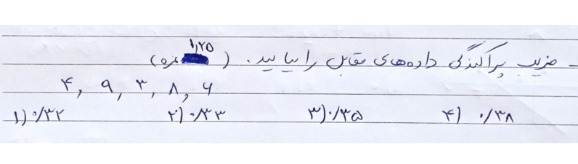 - ضریب پراکندگی داده‌های مقابل را بیابید. (۱٫۲۵ نمره)
۴ , ۹ , ۳ , ۸ , ۶
۱) ۰/۳۲ ۲) ۰/۳۳ ۳) ۰/۳۵ ۴) ۰/۳۸